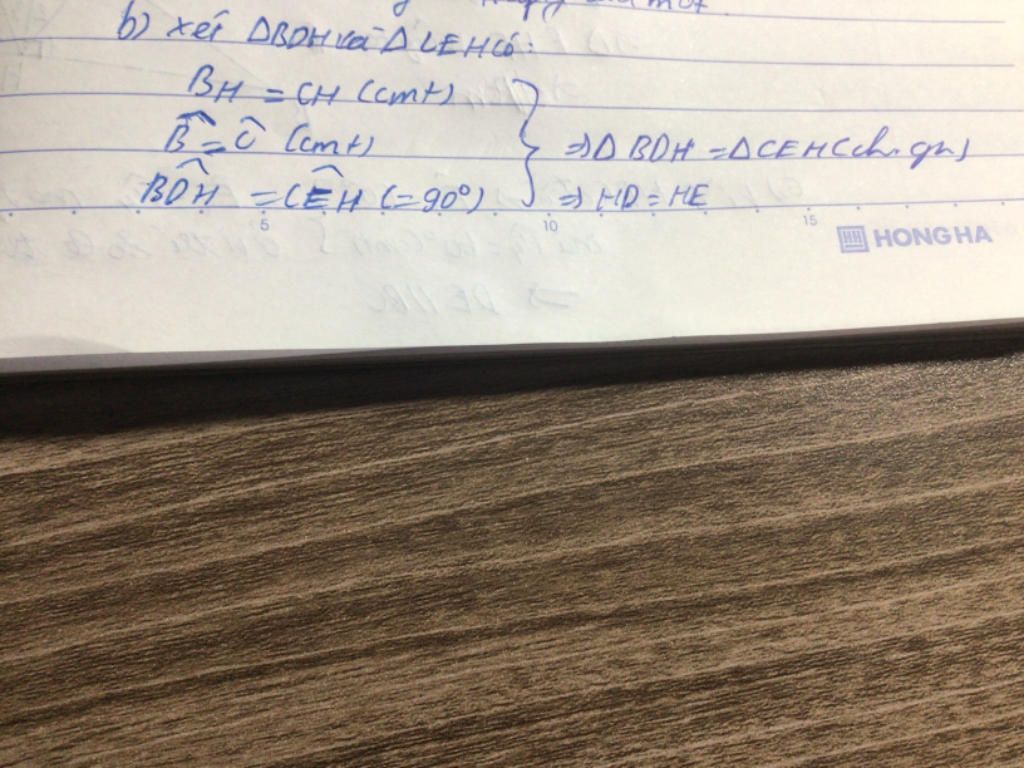 b) xét ΔBDH và ΔCEH có:
BH = CH (cmt)
B̂ = Ĉ (cmt) => Δ BDH = ΔCEH (ch.gn)
BDH = CEH (= 90°) => HD = HE
5 10 15
HONG HA